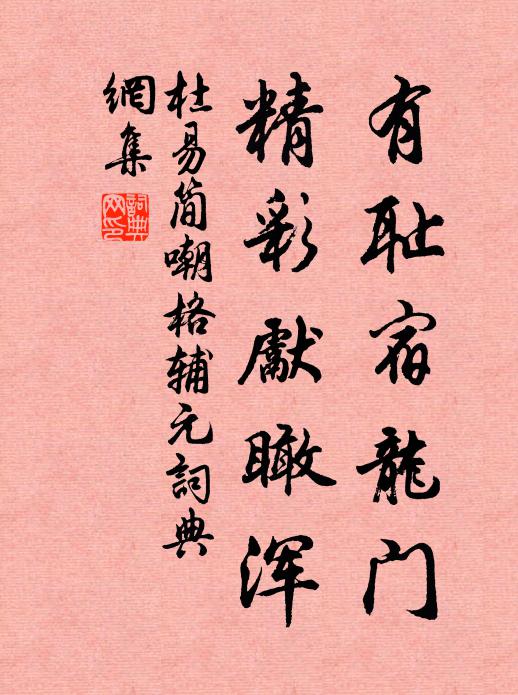 有耻宿龍门
精彩獻瞰浑
杜易简嘲格辅元詞典
網集
詞典
网印